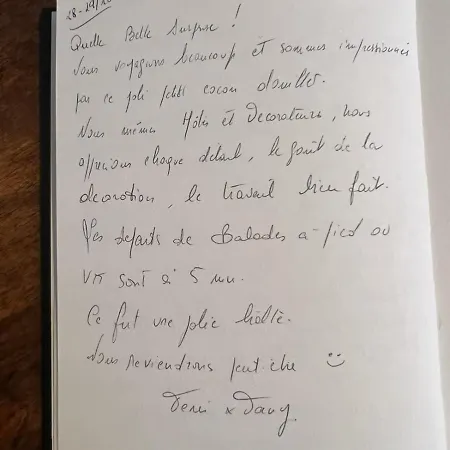 Quelle Belle Surprise !
Nous voyageons beaucoup et sommes impressionnés
par ce joli petit cocon douillet.
Nous mêmes Hôtes et Décorateurs, nous
apprécions chaque détail, le goût de la
décoration, le travail bien fait.
Les départs de Balades à pied ou
VTT sont à 5 mn.
Ce fut une jolie halte.
Nous reviendrons peut être